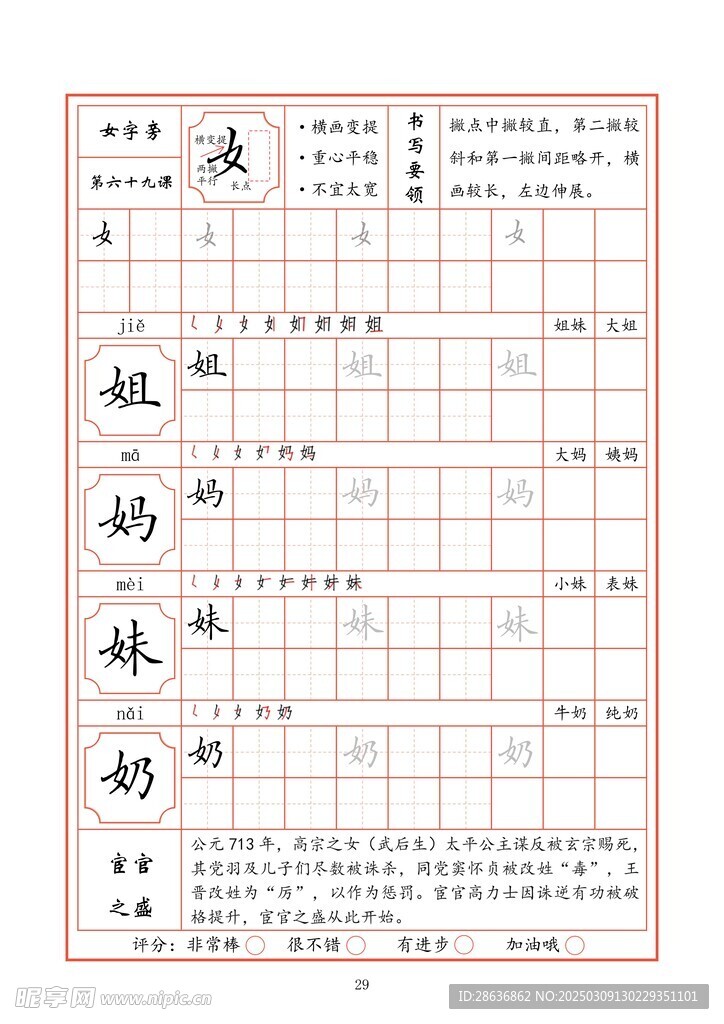 女字旁
第六十九课
横变提
两撇
平行
长点
女
• 横画变提
• 重心平稳
• 不宜太宽
书写要领
撇点中撇较直，第二撇较
斜和第一撇间距略开，横
画较长，左边伸展。
女 女 女 女
jiě
姐妹 大姐
姐 姐 姐 姐
mā
大妈 姨妈
妈 妈 妈 妈
mèi
小妹 表妹
妹 妹 妹 妹
nǎi
牛奶 纯奶
奶 奶 奶 奶
宦官
之盛
公元 713 年，高宗之女（武后生）太平公主谋反被玄宗赐死，
其党羽及儿子们尽数被诛杀，同党窦怀贞被改姓“毒”，王
晋改姓为“厉”，以作为惩罚。宦官高力士因诛逆有功被破
格提升，宦官之盛从此开始。
评分：非常棒 很不错 有进步 加油哦
29
昵享网 www.nipic.cn
ID:28636862 NO:20250309130229351101